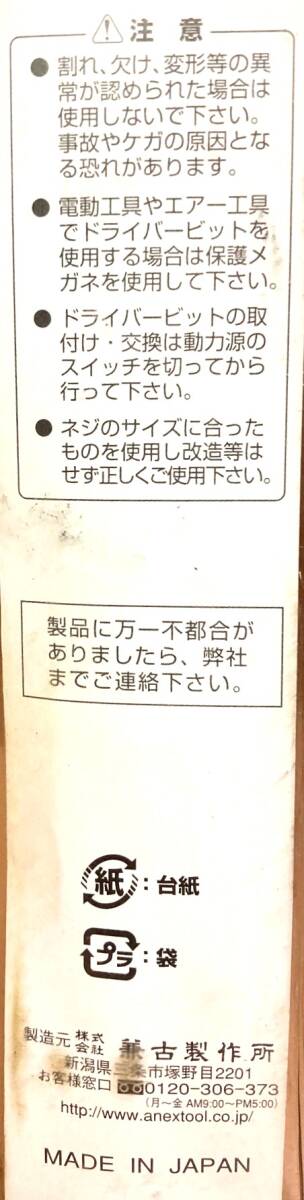 注意
● 割れ、欠け、変形等の異
常が認められた場合は
使用しないで下さい。
事故やケガの原因とな
る恐れがあります。
● 電動工具やエアー工具
でドライバービットを
使用する場合は保護メ
ガネを使用して下さい。
● ドライバービットの取
付け・交換は動力源の
スイッチを切ってから
行って下さい。
● ネジのサイズに合った
ものを使用し改造等は
せず正しくご使用下さい。
製品に万一不都合が
ありましたら、弊社
までご連絡下さい。
紙:台紙
プラ:袋
製造元 株式会社 兼古製作所
新潟県三条市塚野目2201
お客様窓口 0120-306-373
(月〜金 AM9:00〜PM5:00)
http://www.anextool.co.jp/
MADE IN JAPAN